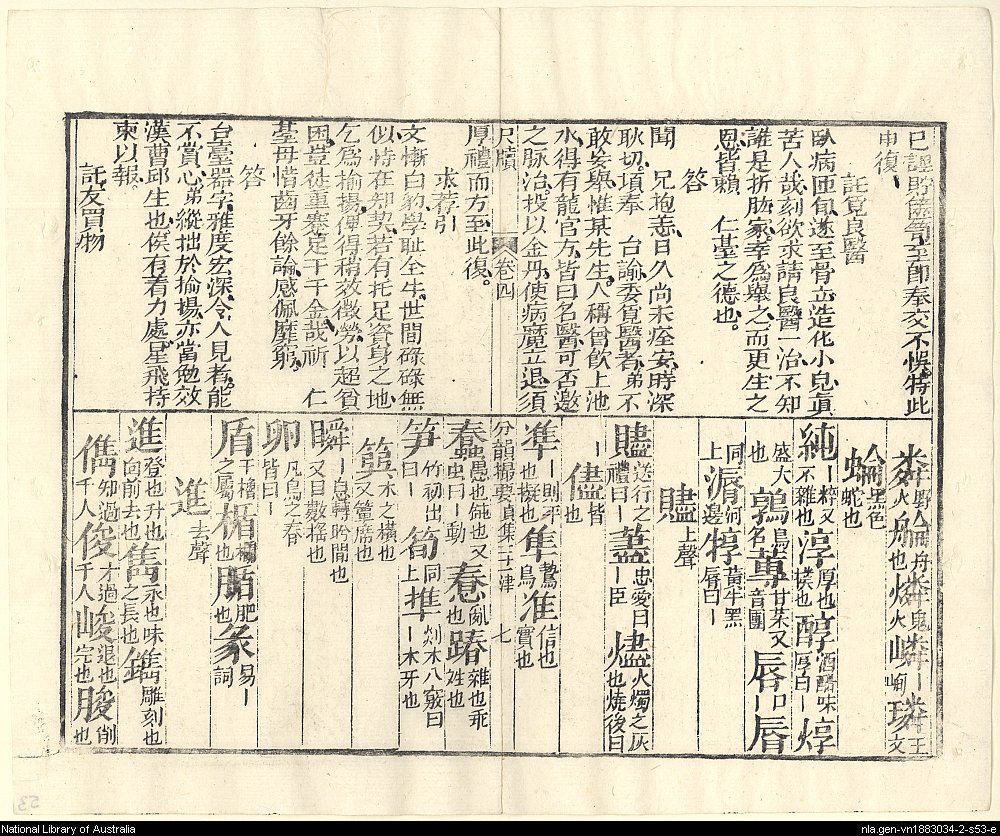 已謹貯篋笥至節奉交不悞特此
申復
託覓良醫
臥病匝旬遂至骨立造化小兒眞
苦人哉刻欲求請良醫一治不知
誰是折肱家幸爲舉之而更生之
恩皆賴 仁臺之德也
答
聞 兄抱恙日久尚未痊安時深
耿切項奉 台諭委覓醫者弟不
敢妄舉惟某先生人稱曾飲上池
水得有龍官方皆曰名醫可否邀
之脉治投以金丹使病魔立退須
尺牘 卷四
厚禮而方至此復
求荐引
文慚白豹學耻全牛世間碌碌無
似恃在知契若有托足資身之地
乞爲揄揚俾得稍效微勞以超貧
困豈徒重蹇足于千金哉祈 仁
臺毋惜齒牙餘論感佩靡窮
答
台臺器字雅度宏深令人見者能
不賞心弟縱拙於揄揚亦當勉效
漢曹邱生也俟有着力處星飛持
柬以報
託友買物
粦野火 舟也 燐鬼火 嶙 璘玉文
蜦黑色蛇也
純粹又不雜也 淳厚也樸也 醇酒醲味厚曰 焞
盛大也 鶉鳥名 蓴甘菜又音團 唇口 脣
同上 漘河邊 犉黃牛黑唇曰
贐上聲
贐送行之禮曰 藎忠愛曰臣 燼火燭之灰也燒後曰
儘皆也
準則平也擬也 隼鷙鳥 准信也實也
分韻撮要貞集 三十津 七
蠢愚也鈍也又虫曰動 惷亂也 踳雜也乖姓也
笋竹初出曰 筍同上 準刻木八竅曰木牙也
簨木之橫也又簟席也
瞬息轉盼間也又目數搖也
卵凡鳥之春皆曰
盾干櫓之屬 楯欄也 腯肥也 彖易詞
進去聲
進登也升也向前去也 雋永也味之長也 鐫雕刻也
儁知過千人 俊才過千人 峻退也完也 朘削也
National Library of Australia
nla.gen-vn1883034-2-s53-e